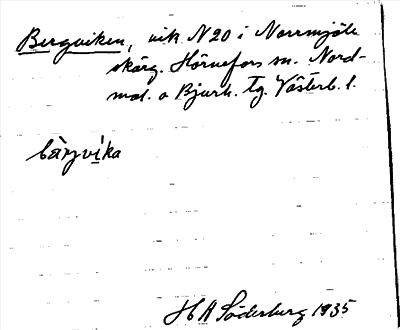 Bergviken, vik N20 i Norrmjöle
skärg. Hörnefors sn. Nord-
mal. o Bjurh. tg. Västerb. l.
bärjvika
H A Söderberg 1935